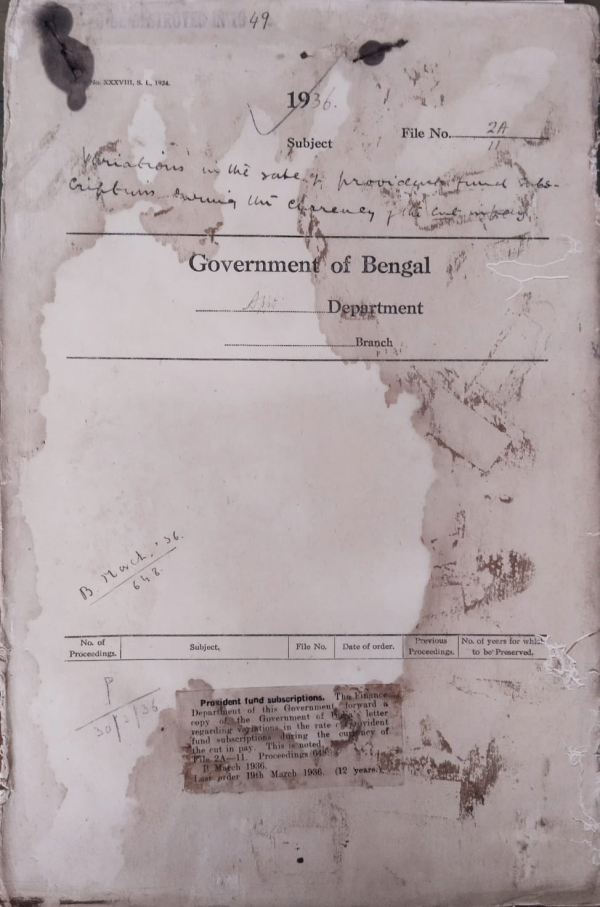 49
No. XXXVIII, S. I., 1924.
1936.
File No. 2A
11
Subject
Variations in the rate of provident fund subs-
criptions during the currency of the cut in pay.
Government of Bengal
Department
Branch
B. March. '36.
648.
No. of Proceedings. Subject. File No. Date of order. Previous Proceedings. No. of years for which to be Preserved.
P
30/3/36
Provident fund subscriptions. The Finance
Department of this Government forward a
copy of the Government of letter
regarding variations in the rate of provident
fund subscriptions during the currency of
the cut in pay. This is noted.
File 2A—11. Proceedings 648.
B March 1936.
Last order 19th March 1936. (12 years.)